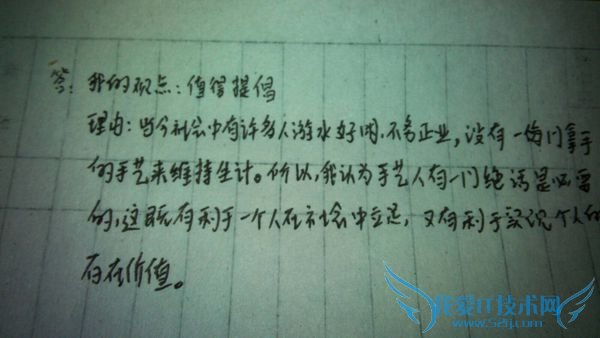 答：我的观点：值得提倡
理由：当今社会中有许多人游水好闲,不务正业，没有一门拿手
的手艺来维持生计。所以，我认为手艺人有一门绝活是必要
的，这既有利于一个人在社会中立足，又有利于实现个人的
存在价值。
我爱IT技术网
www.52ij.com